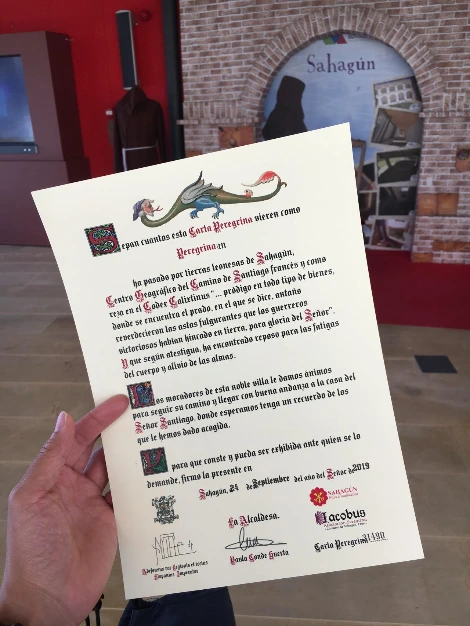 Sahagún
Sepan cuantos esta Carta Peregrina vieren como
Peregrina
ha pasado por tierras leonesas de Sahagún,
Centro Geográfico del Camino de Santiago francés y como
reza en el Codex Calixtinus "... pródigo en todo tipo de bienes,
donde se encuentra el prado, en el que se dice, antaño
reverdecieron las astas fulgurantes que los guerreros
victoriosos habían hincado en tierra, para gloria del Señor".
Y que según atestigua, ha encontrado reposo para las fatigas
del cuerpo y alivio de las almas.
Los moradores de esta noble villa le damos ánimos
para seguir su camino y llegar con buena andanza a la casa del
Señor Santiago, donde esperamos tenga un recuerdo de los
que le hemos dado acogida.
Y para que conste y pueda ser exhibida ante quien se lo
demande, firmo la presente en
Sahagún, 24 de Septiembre del año del Señor de 2019
SAHAGÚN
La Alcaldesa.
Iacobus
Paula Conde Huerta
Carta Peregrina 31490